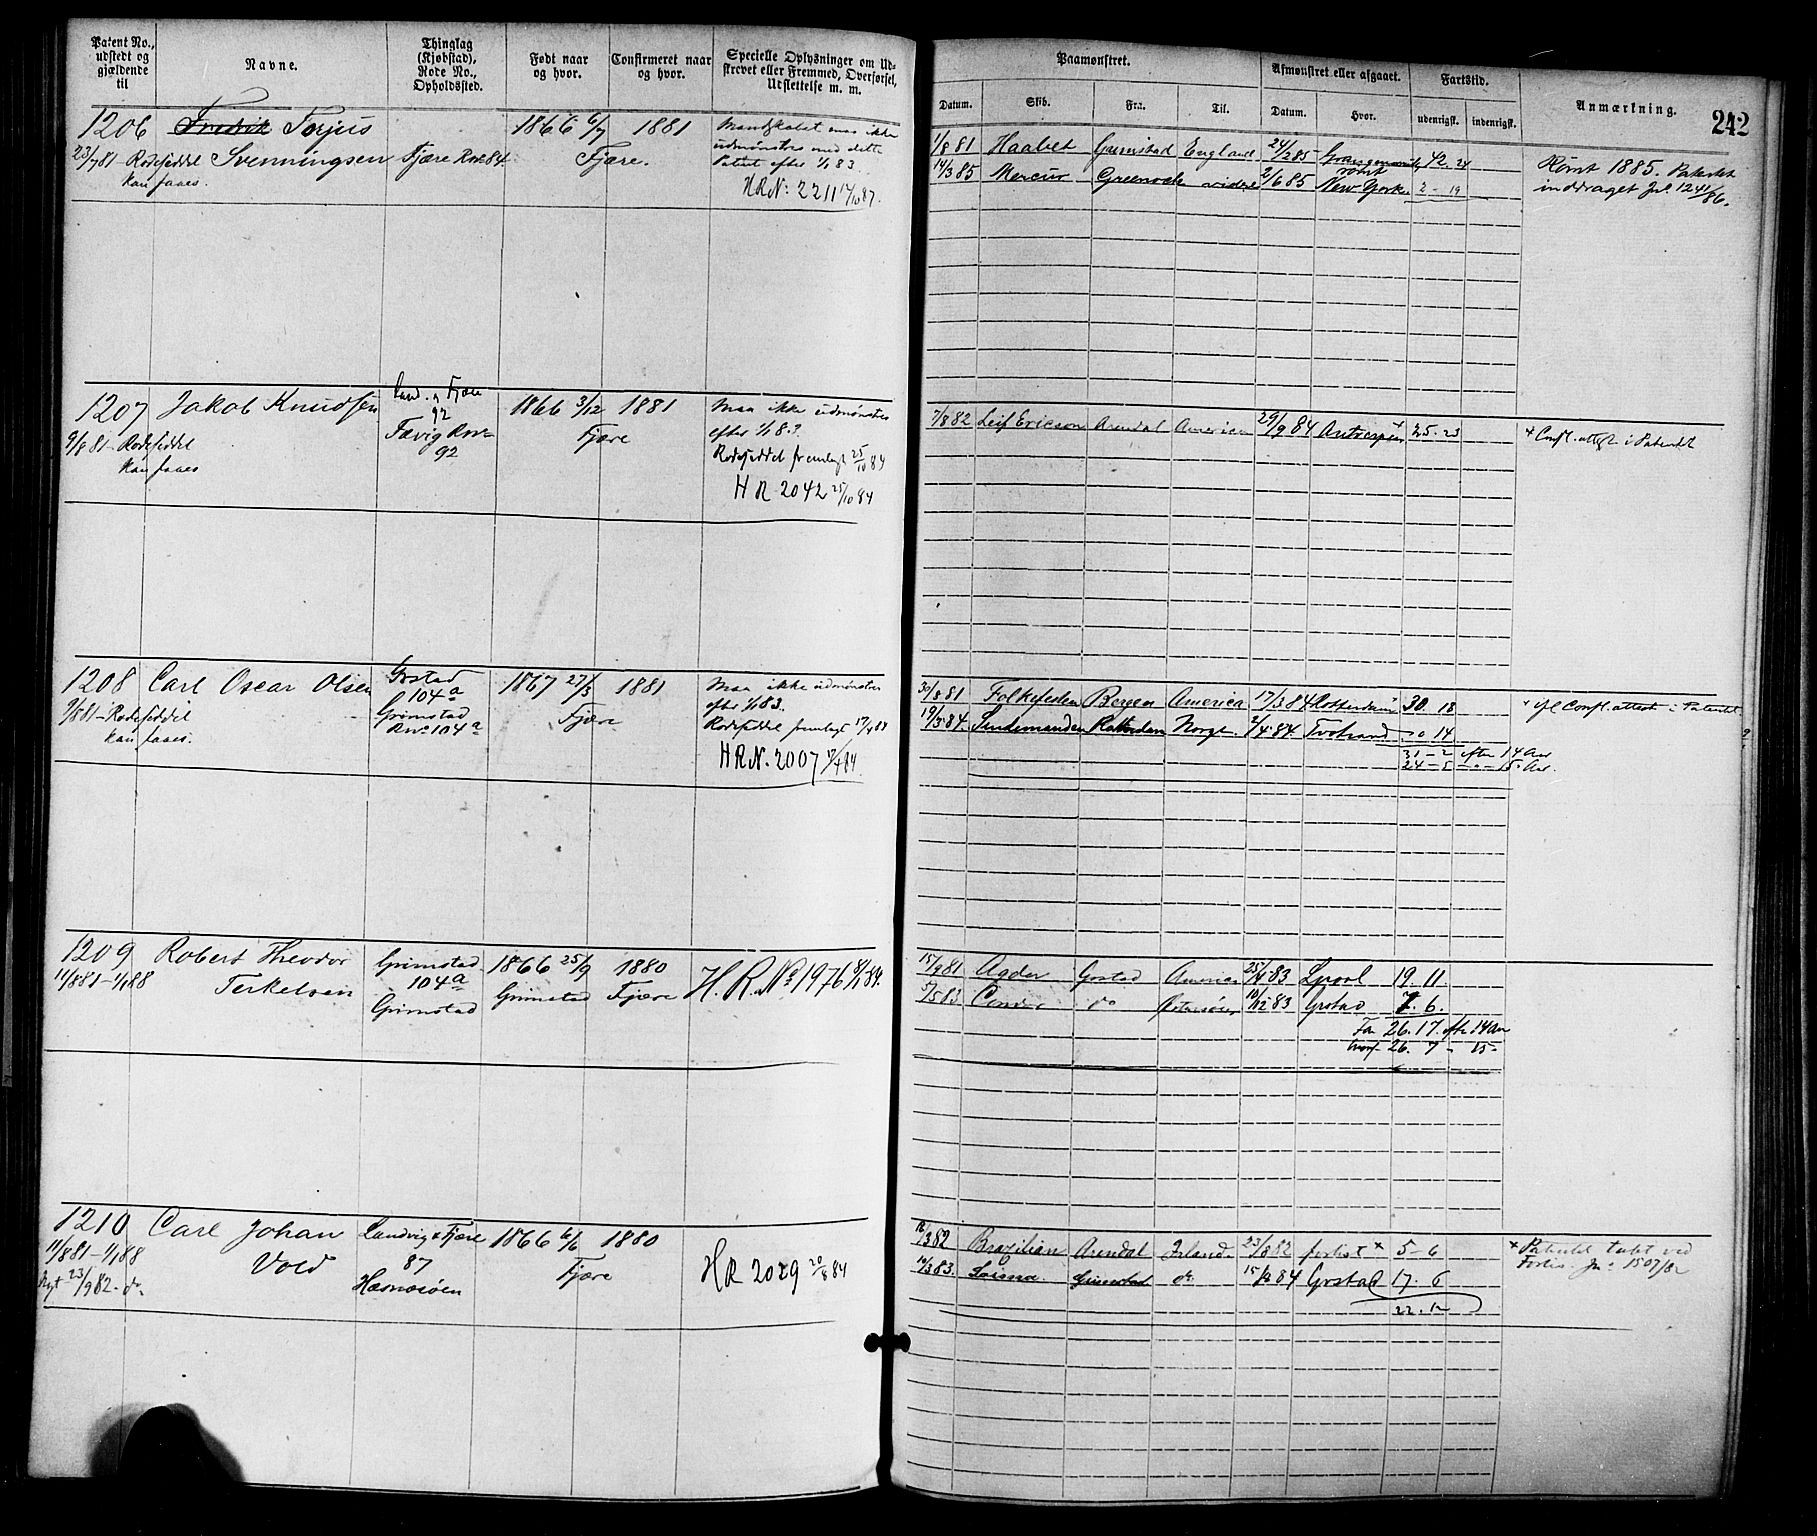 Patent No., udstedt og gjældende til
Navne.
Thinglag (Kjøbstad), Rode No., Opholdssted.
Født naar og hvor.
Confirmeret naar og hvor.
Specielle Oplysninger om Udskrevet eller Fremmed, Overførsel, Udslettelse m. m.
Paamønstret.
Afmønstret eller afgaaet.
Fartstid.
Anmærkning.
242
Datum. Skib. Fra. Til. Datum. Hvor. udenrigsk. indenrigsk.
1206 Fredrik Torjus 1866 6/7 1881 Mandskabet maa ikke
23/7 81 - Rodeseddel Svenningsen Fjære Rode 84 Fjære. udmønstres med dette
kan faaes. Patent efter 1/1 83.
HRN: 2211 17/10 87.
1/8 81 Haabet Grimstad England 24/2 85 42. 24
14/3 85 Mercur Greenock videre 2/6 85 rømt New York 2 - 19
Rømt 1885. Patentet
inddraget Jn. 1241/86.
1207 Jakob Knudsen Land. & Fjære 1866 3/12 1881 Maa ikke udmønstres
92
9/8 81 - Rodeseddel Fævig Rode Fjære efter 1/1 83.
kan faaes 92 Rodeseddel fremlagt 25/10 84
HR 2042 25/10 84
7/8 82 Leif Ericson Arendal America 29/9 84 Antwerpen + 25. 23
+ Conf. attest i Patentet
1208 Carl Oscar Olsen Grstad 1867 27/3 1881 Maa ikke udmønstres
104a
9/8 81 - Rodeseddel Grimstad Fjære efter 1/1 83.
kan faaes. R No 104a Rodeseddel fremlagt 17/4 84
HRN. 2007 17/4 84
30/8 81 Folkefesten Bergen America 17/3 84 Rotterdam 30. 18
19/3 84. Sandemanden Rotterdam Norge 2/4 84 Tvetrand " 14
31 - 2 efter 14 Aar
24 - 5 - " - 15 Aar.
Conf. attest i Patentet
1209 Robert Theodor Grimstad 1866 25/9 1880 H. R. No 1976 8/1 84.
104a
11/8 81 - 1/1 88 Terkelsen Grimstad Grimstad Fjære
15/9 81 Agder Grstad America 25/4 83 Lpool 19. 11.
5/5 83 do 10/12 83 Grstad 7. 6.
Far 26. 17. efter 14 Aar
hvoraf 26. 7 - 15 -
1210 Carl Johan Landvig & Fjære 1866 6/6 1880
11/8 81 - 1/1 88 Vold 87 Fjære HR 2029 20/8 84
Nyt 23/9 82 - do Hasnesøen
16/3 82 Brazilian Arendal Irland 23/8 82 forlist + 5 - 6
14/3 83. Grimstad do 15/8 84 Grstad 17. 6
22. 12
+ Patentet tabt ved
Forlis Jn. 1507/82